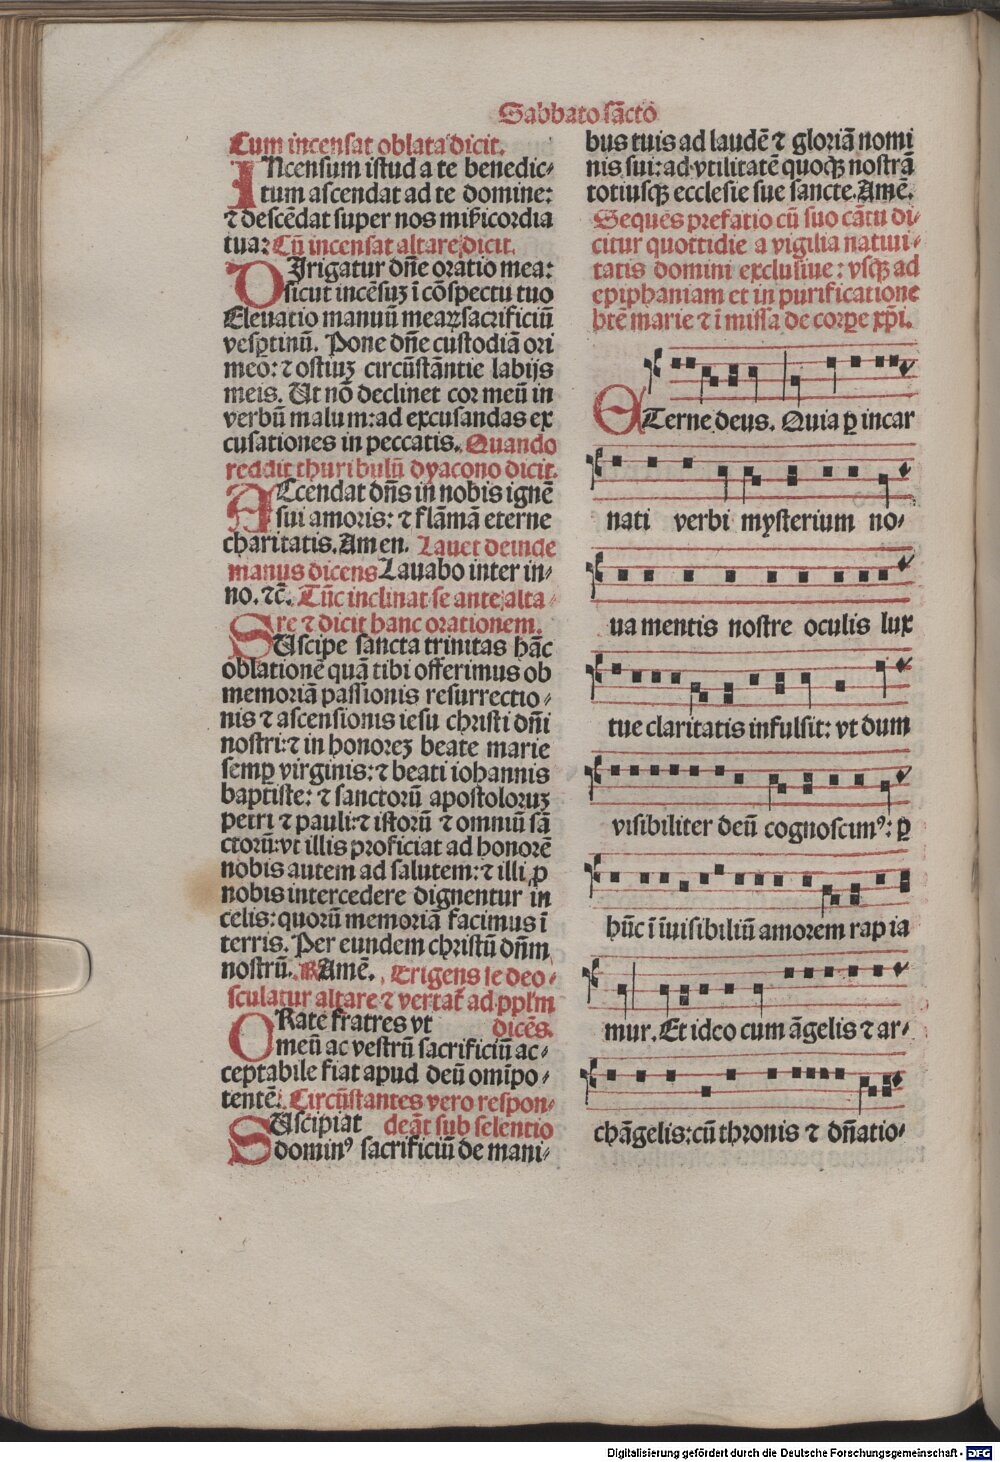 Sabbato sācto
Cum incensat oblata dicit.
INcensum istud a te benedic⸗
tum ascendat ad te domine:
⁊ descēdat super nos mīicordia
tua: Cū incensat altare dicit.
DIrigatur dn̄e oratio mea:
sicut incēsuꝫ ī cōspectu tuo
Eleuatio manuū mearꝝ sacrificiū
vesꝑtinū. Pone dn̄e custodiā ori
meo: ⁊ ostiuꝫ circūstāntie labijs
meis. Ut nō declinet cor meū in
verbū malum: ad excusandas ex
cusationes in peccatis. Quando
reddit thuribulū dyacono dicit.
ACcendat dn̄s in nobis ignē
sui amoris: ⁊ flāmā eterne
charitatis. Amen. Lauet deinde
manus dicens Lauabo inter in⸗
no. ⁊c̄. Tūc inclinat se ante alta⸗
re ⁊ dicit hanc orationem.
SUscipe sancta trinitas hāc
oblationē quā tibi offerimus ob
memoriā passionis resurrectio⸗
nis ⁊ ascensionis iesu christi dn̄i
nostri: ⁊ in honoreꝫ beate marie
semꝑ virginis: ⁊ beati iohannis
baptiste: ⁊ sanctorū apostoloruꝫ
petri ⁊ pauli: ⁊ istorū ⁊ omniū sā
ctorū: vt illis proficiat ad honorē
nobis autem ad salutem: ⁊ illi ꝓ
nobis intercedere dignentur in
celis: quorū memoriā facimus ī
terris. Per eundem christū dn̄m
nostrū. ℟ Amē. Erigens se deo⸗
sculatur altare ⁊ vertat̄ ad pplm
ORate fratres vt dicēs.
meū ac vestrū sacrificiū ac⸗
ceptabile fiat apud deū omīpo⸗
tentē. Circūstantes vero respon⸗
SUscipiat deāt sub selentio
dominꝰ sacrificiū de mani⸗
bus tuis ad laudē ⁊ gloriā nomi
nis sui: ad vtilitatē quoqꝫ nostrā
totiusqꝫ ecclesie sue sancte. Amē.
Sequēs prefatio cū suo cātu di⸗
citur quottidie a vigilia natiui⸗
tatis domini exclusiue: vsqꝫ ad
epiphaniam et in purificatione
btē marie ⁊ ī missa de corꝑe xp̄i.
ETerne deus. Quia ꝑ incar
nati verbi mysterium no⸗
ua mentis nostre oculis lux
tue claritatis infulsit: vt dum
visibiliter deū cognoscimꝰ: ꝑ
hūc ī īuisibiliū amorem rapia
mur. Et ideo cum āgelis ⁊ ar⸗
chāgelis: cū thronis ⁊ dn̄atio⸗
Digitalisierung gefördert durch die Deutsche Forschungsgemeinschaft - DFG